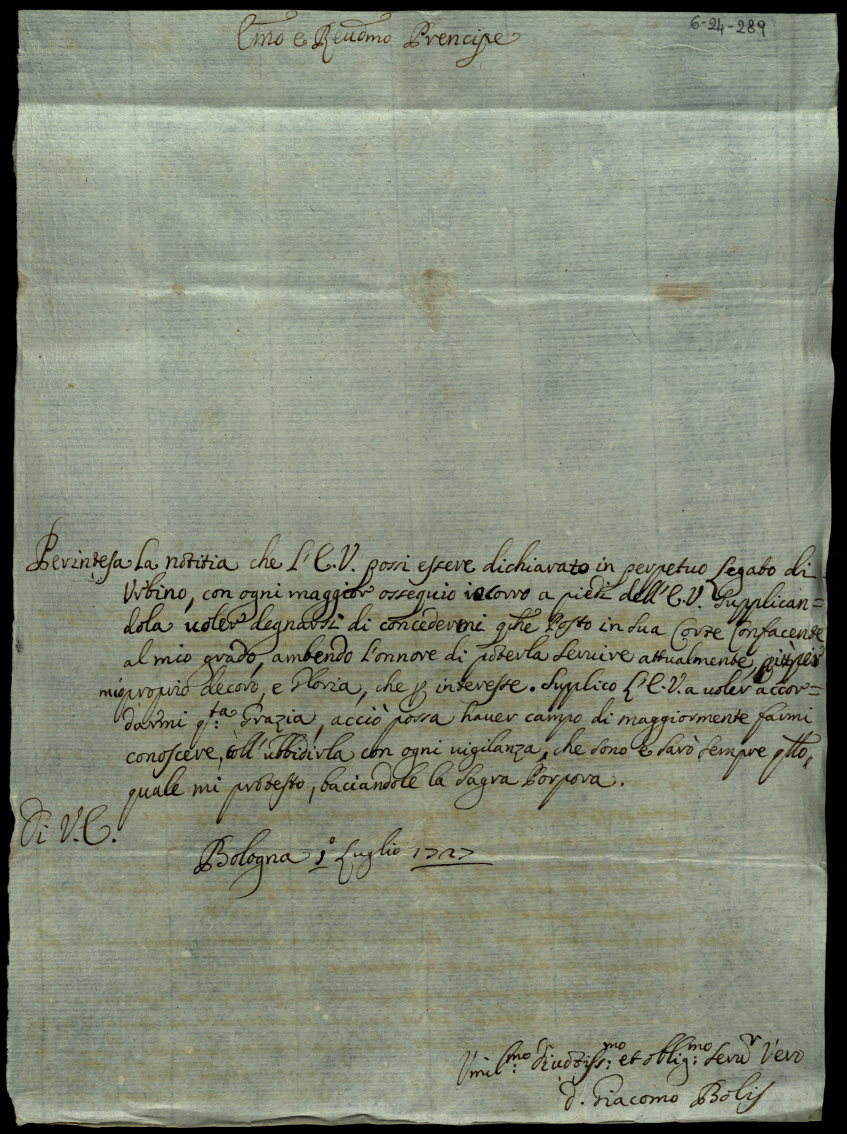 6-24-289
Emo e Reudmo Prencipe
Perintesa La notitia che L'E.V. possi essere dichiarato in perpetuo Legato di
Urbino, con ogni maggior ossequio incorro a piedi dell'E.V. Supplican=
dola uoler degnarsi di concedermi qche Posto in sua Corte Confacente
al mio grado, ambendo L'onnore di poterla seruire attualmente, più per
mio proprio decoro, e Gloria, che p interesse. Supplico L'E.V. a uoler accor=
darmi q:ta Grazia, acciò possa hauer campo di maggiormente farmi
conoscere, coll'ubbidirla con ogni uigilanza, che sono e sarò sempre qllo,
quale mi protesto, baciandole la Sagra Porpora.
Di V.E.
Bologna 1º Luglio 1727
Vmil:mo Diuotiss:mo et oblig:mo seru:r Vero
D. Giacomo Bolis